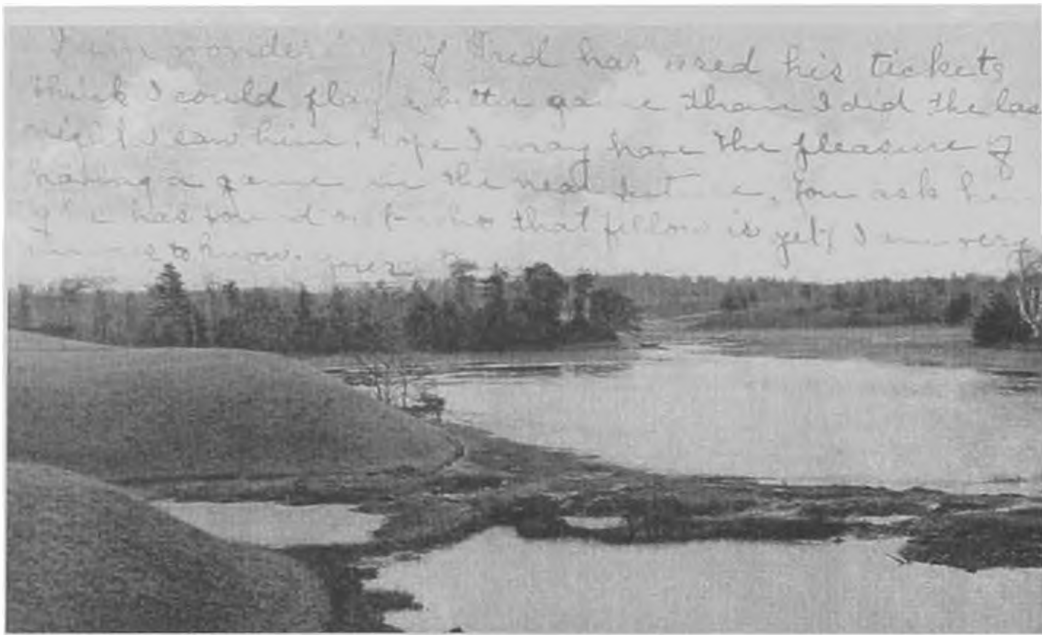 wonder if Fred has used his tickets
think I could play a better game than I did the las
night I saw him. hope I may have the pleasure of
having a game in the near future. You ask him
if he has found out who that fellow is yet, I am very
to know. yours